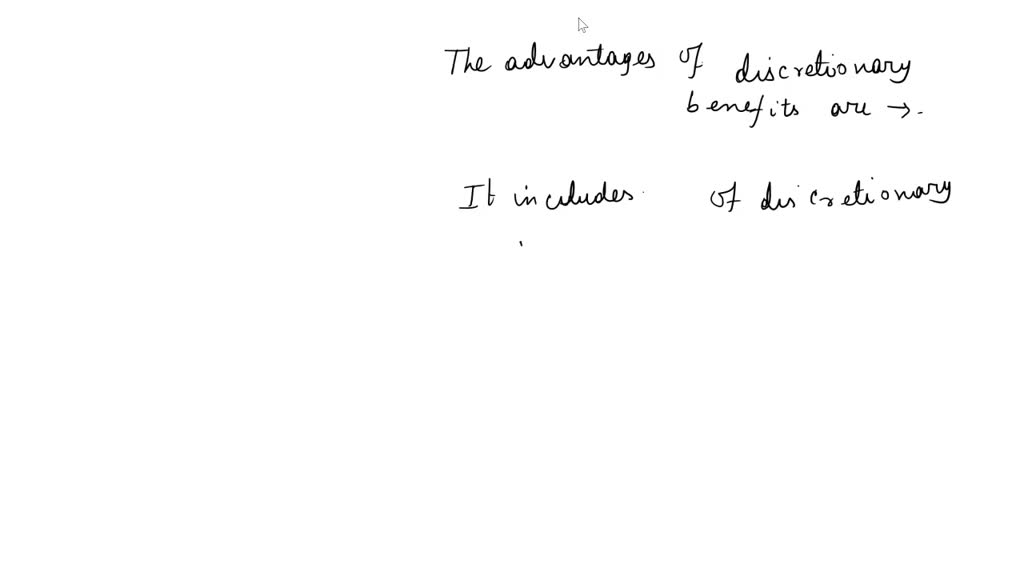 The advantages of discretionary
benefits are →.
It includes of discretionary